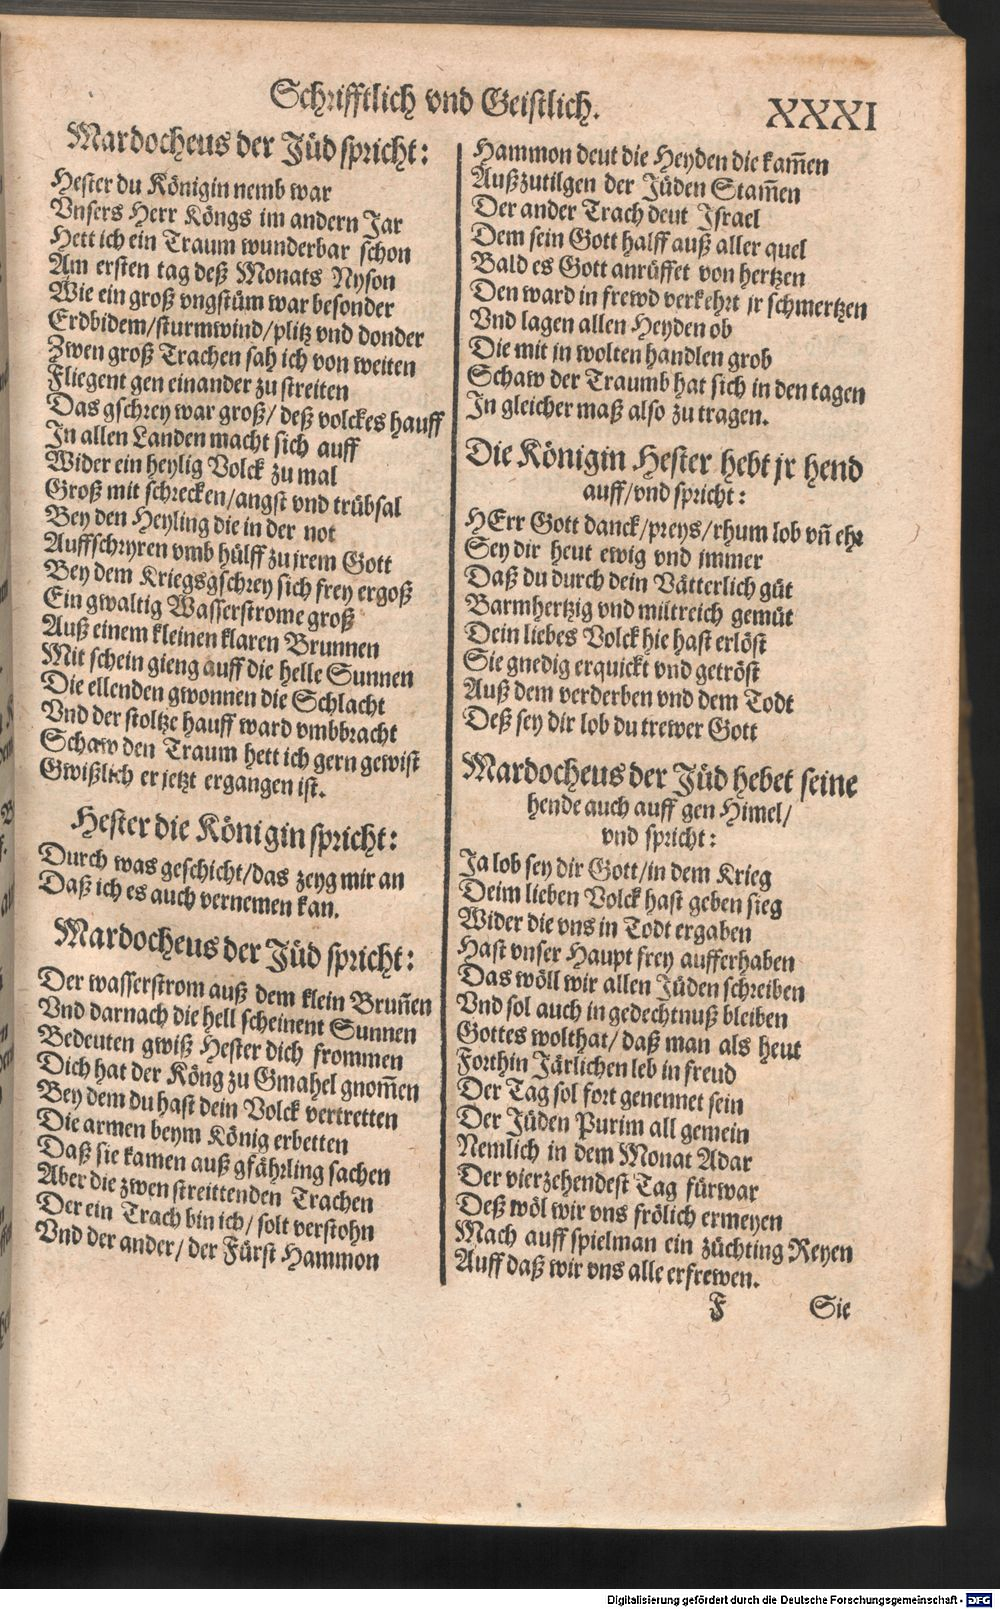 Schrifftlich vnd Geistlich.
XXXI
Mardocheus der Jüd spricht:
Hester du Königin nemb war
Vnsers Herr Köngs im andern Jar
Hett ich ein Traum wunderbar schon
Am ersten tag deß Monats Nyson
Wie ein groß vngstüm war besonder
Erdbidem/sturmwind/plitz vnd donder
Zwen groß Trachen sah ich von weiten
Fliegent gen einander zu streiten
Das gschrey war groß/ deß volckes hauff
In allen Landen macht sich auff
Wider ein heylig Volck zu mal
Groß mit schrecken/angst vnd trübsal
Bey den Heyling die in der not
Auffschryren vmb hülff zu jrem Gott
Bey dem Kriegsgschrey sich frey ergoß
Ein gwaltig Wasserstrome groß
Auß einem kleinen klaren Brunnen
Mit schein gieng auff die helle Sunnen
Die ellenden gwonnen die Schlacht
Vnd der stoltze hauff ward vmbbracht
Schaw den Traum hett ich gern gewist
Gwißlich er jetzt ergangen ist.
Hester die Königin spricht:
Durch was geschicht/das zeyg mir an
Daß ich es auch vernemen kan.
Mardocheus der Jüd spricht:
Der wasserstrom auß dem klein Bruñen
Vnd darnach die hell scheinent Sunnen
Bedeuten gwiß Hester dich frommen
Dich hat der Köng zu Gmahel gnom̃en
Bey dem du hast dein Volck vertretten
Die armen beym König erbetten
Daß sie kamen auß gfährling sachen
Aber die zwen streittenden Trachen
Der ein Trach bin ich/ solt verstohn
Vnd der ander/ der Fürst Hammon
Hammon deut die Heyden die kam̃en
Außzutilgen der Jüden Stam̃en
Der ander Trach deut Israel
Dem sein Gott halff auß aller quel
Bald es Gott anrüffet von hertzen
Den ward in frewd verkehrt jr schmertzen
Vnd lagen allen Heyden ob
Die mit jn wolten handlen grob
Schaw der Traumb hat sich in den tagen
In gleicher maß also zu tragen.
Die Königin Hester hebt jr hend
auff/vnd spricht:
HErr Gott danck/preys/rhum lob vñ ehr
Sey dir heut ewig vnd jmmer
Daß du durch dein Vätterlich güt
Barmhertzig vnd miltreich gemüt
Dein liebes Volck hie hast erlöst
Sie gnedig erquickt vnd getröst
Auß dem verderben vnd dem Todt
Deß sey dir lob du trewer Gott
Mardocheus der Jüd hebet seine
hende auch auff gen Himel/
vnd spricht:
Ja lob sey dir Gott/in dem Krieg
Deim lieben Volck hast geben sieg
Wider die vns in Todt ergaben
Hast vnser Haupt frey aufferhaben
Das wöll wir allen Jüden schreiben
Vnd sol auch in gedechtnuß bleiben
Gottes wolthat/ daß man als heut
Forthin Järlichen leb in freud
Der Tag sol fort genennet sein
Der Jüden Purim all gemein
Nemlich in dem Monat Adar
Der vierzehendest Tag fürwar
Deß wöl wir vns frölich ermeyen
Mach auff spielman ein züchting Reyen
Auff daß wir vns alle erfrewen.
F
Sie
Digitalisierung gefördert durch die Deutsche Forschungsgemeinschaft - DFG